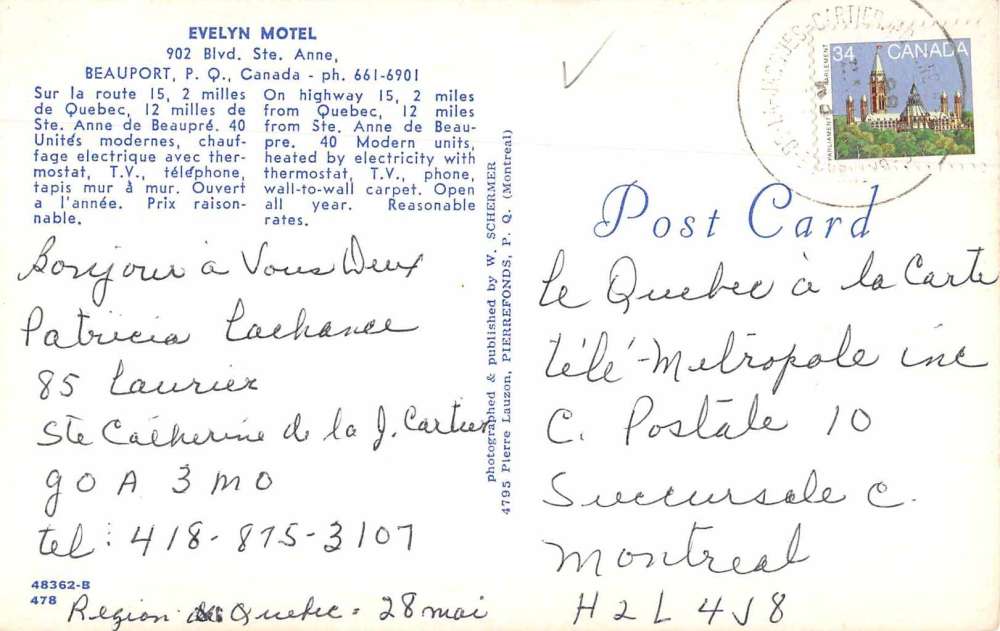 EVELYN MOTEL
902 Blvd. Ste. Anne,
BEAUPORT, P. Q., Canada - ph. 661-6901
Sur la route 15, 2 milles
de Quebec, 12 milles de
Ste. Anne de Beaupré. 40
Unités modernes, chauf-
fage electrique avec ther-
mostat, T.V., téléphone,
tapis mur à mur. Ouvert
a l'année. Prix raison-
nable.
On highway 15, 2 miles
from Quebec, 12 miles
from Ste. Anne de Beau-
pre. 40 Modern units,
heated by electricity with
thermostat, T.V., phone,
wall-to-wall carpet. Open
all year. Reasonable
rates.
Bonjour à Vous Deux
Patricia Lachance
85 Laurier
Ste Catherine de la J. Cartier
G0A 3M0
tel: 418-875-3107
48362-B
478
Region de Quebec - 28 mai
photographed & published by W. SCHERMER
4795 Pierre Lauzon, PIERREFONDS, P. Q. (Montreal)
34 CANADA
PARLIAMENT PARLEMENT
JACQUES-CARTIER
PM
Post Card
Le Quebec à la Carte
télé-Metropole inc
C. Postale 10
Succursale C.
Montreal
H2L 4J8